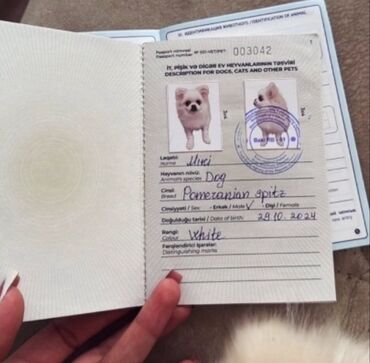 III. ИДЕНТИФИКАЦИЯ ЖИВОТНОГО / IDENTIFICATION OF ANIMAL
Passport nömrəsi
Passport number № 001-VET/PET- 003042
İT, PİŞİK VƏ DİGƏR EV HEYVANLARININ TƏSVİRİ
DESCRIPTION FOR DOGS, CATS AND OTHER PETS
Bakı
Ləqəbi:
Name
Heyvanın növü: Dog
Animal's species
Cinsi Pomeranian spitz
Breed
Cinsiyyəti / Sex - Erkək / Male V - Dişi / Female
Doğulduğu tarixi / Date of birth: 29.10.2024
Rəngi: White
Colour
Fərqləndirici işarələr:
Distinguishing marks